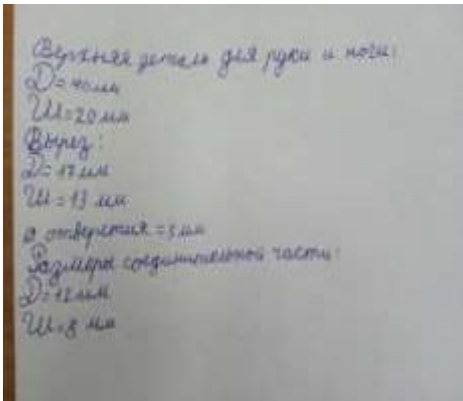 Верхняя деталь для руки и ноги:
Д=40мм
Ш=20мм
Вырез:
Д=17мм
Ш=13 мм
отверстия =3мм
Размеры соединительной части:
Д=12мм
Ш=8 мм